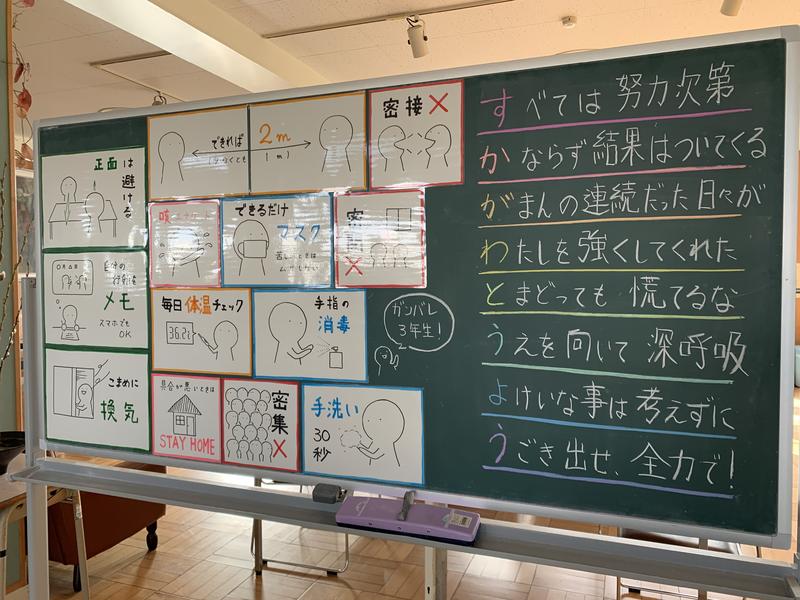 正面は
避ける
自分の
行動を
メモ
スマホでも
OK
こまめに
換気
できれば 2m
(少なくとも 1m)
密接×
咳エチケット
できるだけ
マスク
密閉×
毎日体温チェック
36.2℃
手指の
消毒
具合が悪いときは
STAY HOME
密集×
手洗い
30秒
ガンバレ
3年生!
すべては 努力次第
かならず結果はついてくる
がまんの連続だった日々が
わたしを強くしてくれた
とまどっても 慌てるな
うえを向いて 深呼吸
よけいな事は考えずに
うごき出せ、全力で!